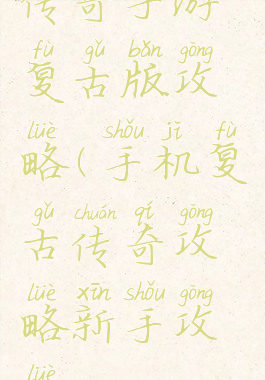 传奇手游
fù gǔ bǎn gōng
复古版攻
lüè shǒu jī fù
略(手机复
gǔ chuán qí gōng
古传奇攻
lüè xīn shǒu gōng
略新手攻
lüè